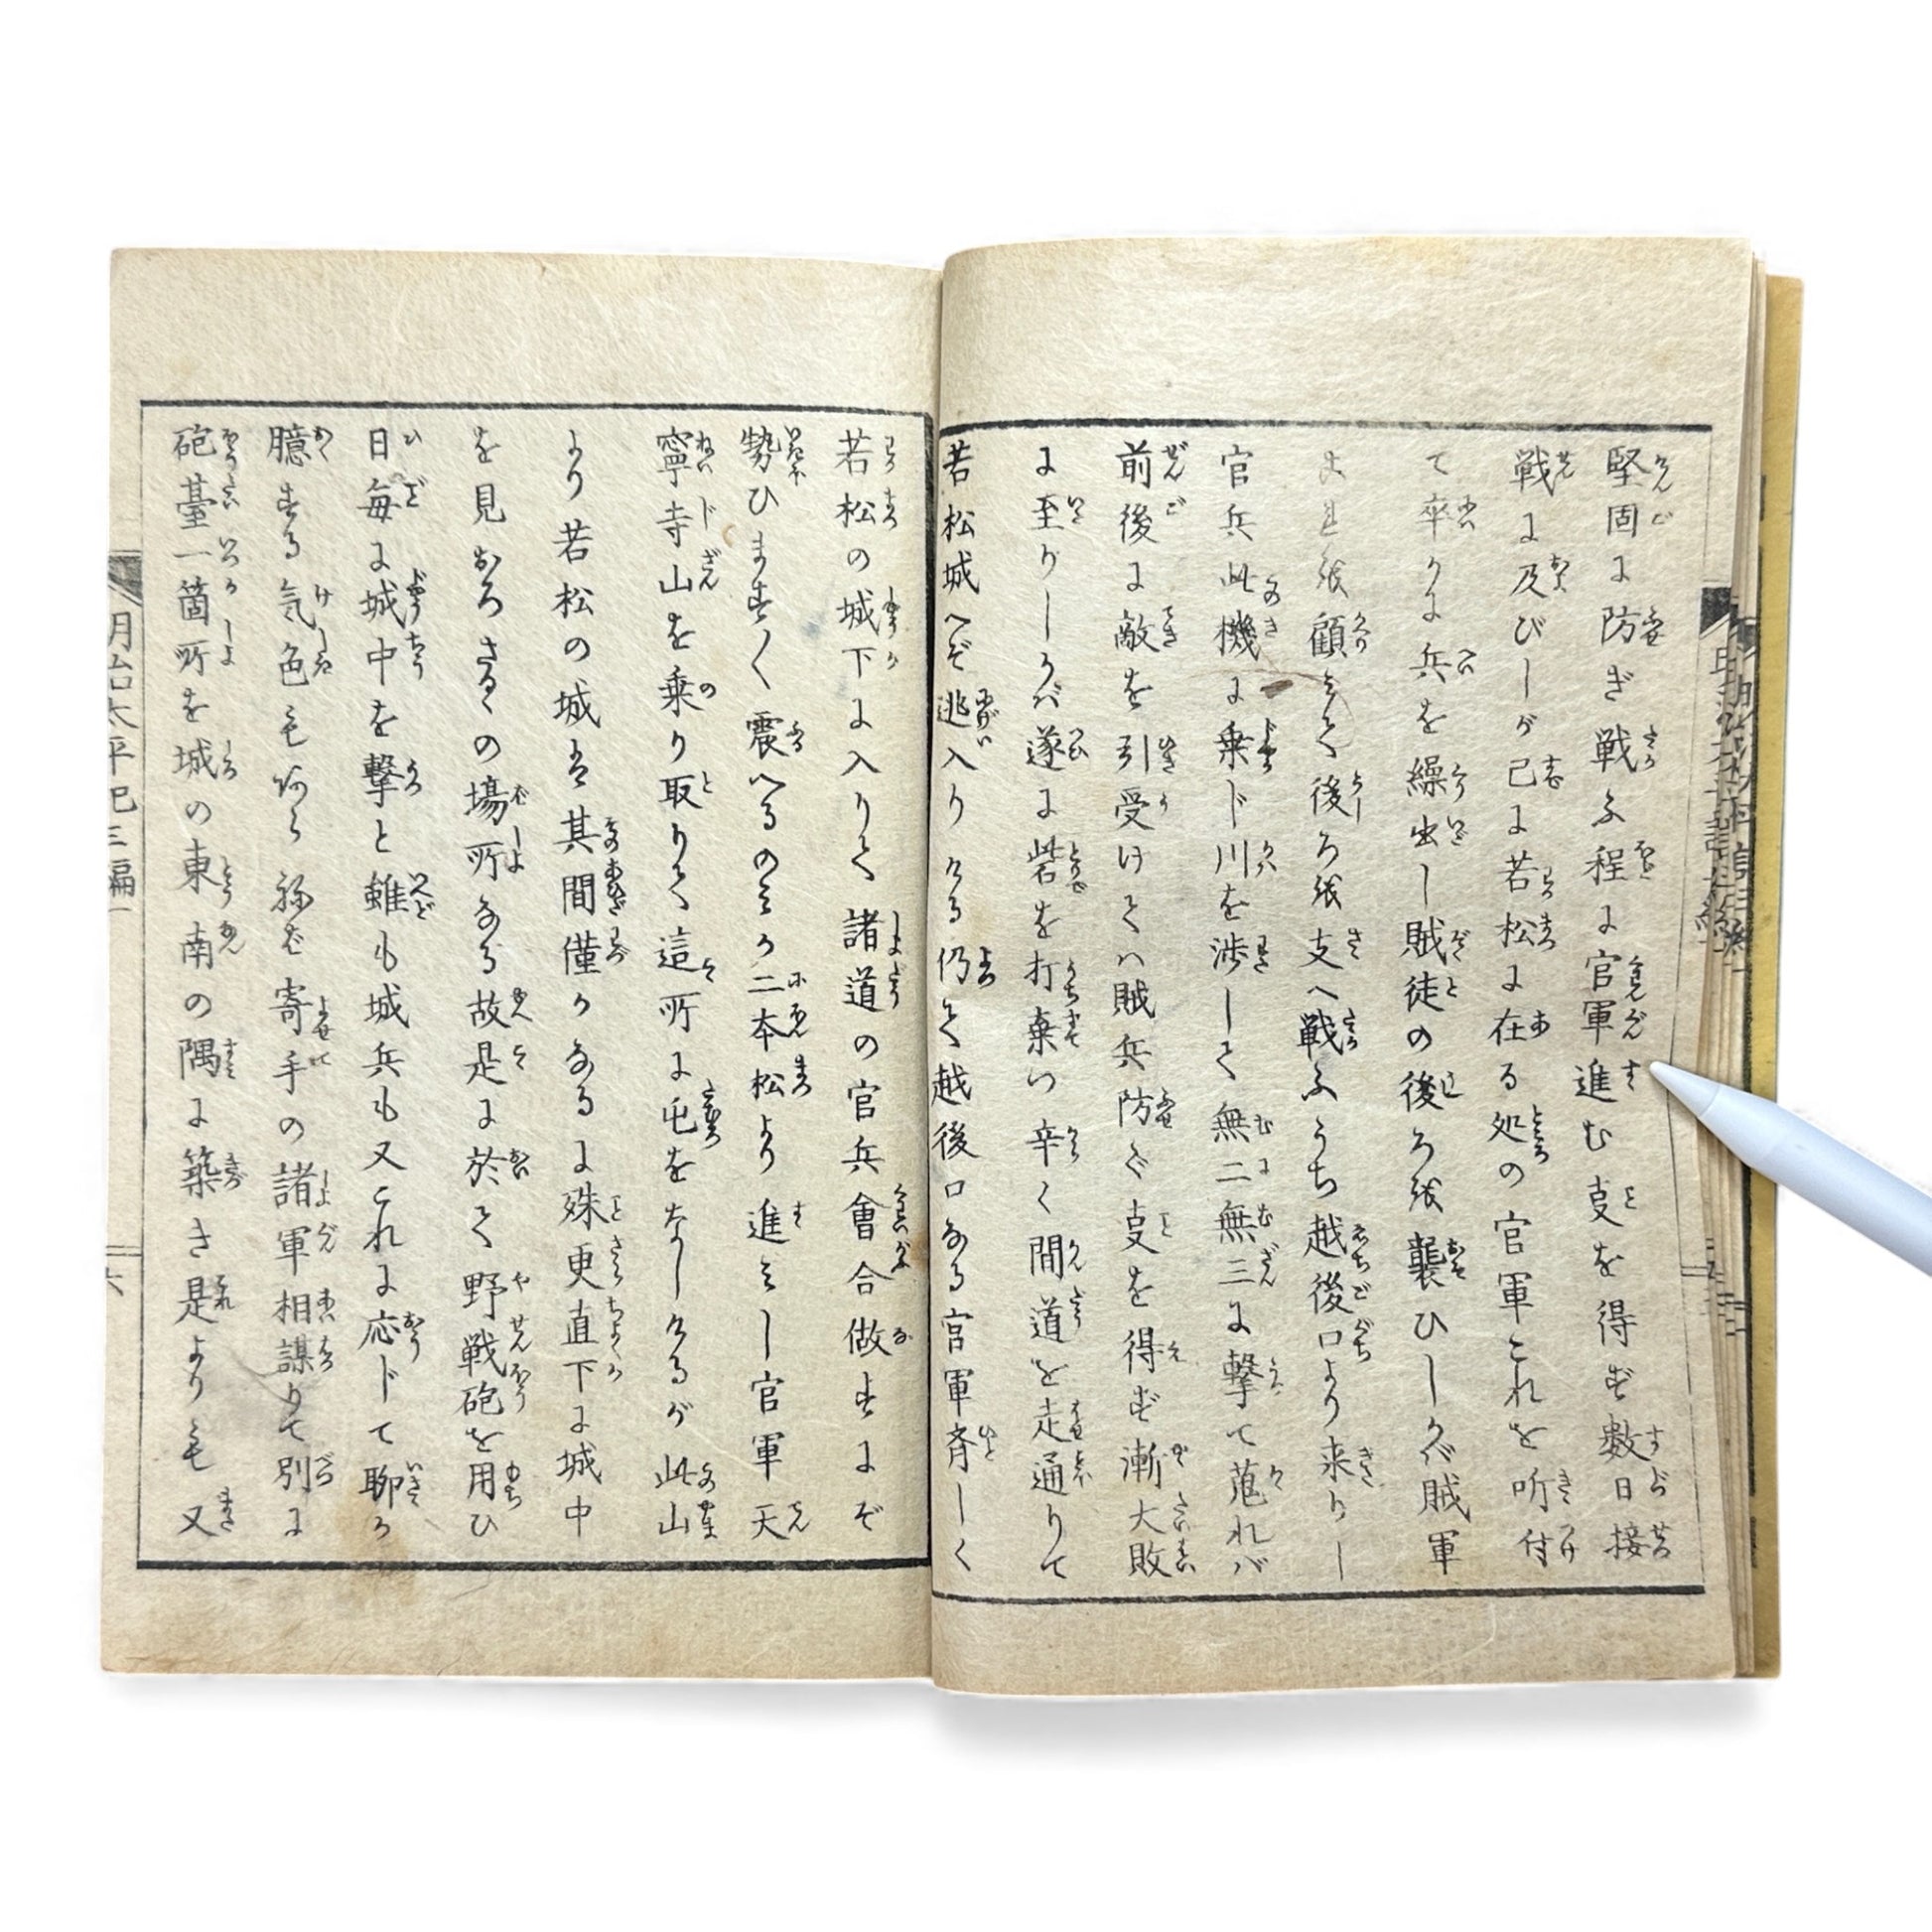 堅固に防ぎ戦ふ程に官軍進む支を得ず数日接
戦に及びしが已に若松に在る処の官軍これを听付
て卒かに兵を繰出し賊徒の後ろを襲ひしかバ賊軍
これを顧みて後ろを支へ戦ふうち越後口より来りし
官兵此機に乗じ川を渉して無二無三に撃て蒐れバ
前後に敵を引受けてハ賊兵防ぐ支を得ず漸大敗
に至りしかバ遂に砦を打棄つ辛く間道を走通りて
若松城へぞ逃入りける仍て越後口なる官軍斉しく
若松の城下に入りて諸道の官兵會合做すにぞ
勢ひますく震へるのミか二本松より進ミし官軍天
寧寺山を乗り取りて這所に屯をなしけるが此山
より若松の城は其間僅かなるに殊更直下に城中
を見おろさるゝの場所なる故是に於て野戦砲を用ひ
日毎に城中を撃と雖も城兵も又これに応じて聊か
臆する気色もあらねば寄手の諸軍相謀りて別に
砲臺一箇所を城の東南の隅に築き是よりも又
明治太平記三編一
六